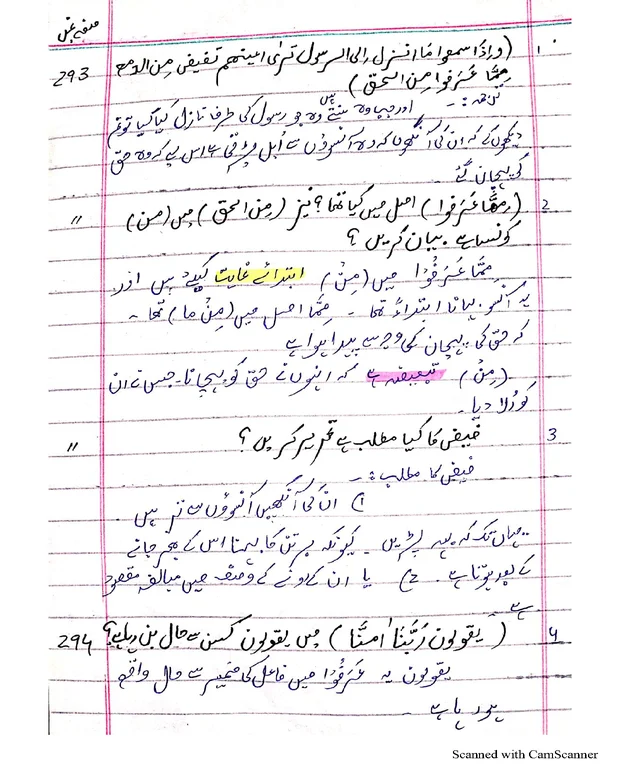 صفحہ نمبر
1 (وَاِذَا سمعوا مَا انزل الی الرسول تری اعینھم تفیض من الدمع 293
مِمَّا عَرَفوا مِنَ الحق)
ترجمہ:۔ اور جب وہ سنتے ہیں وہ جو رسول کی طرف نازل کیا گیا تو تم
دیکھوں گے کہ ان کی آنکھوں کو کہ وہ آنسوؤں سے اُبل پڑتی ہے اس لیے کہ وہ حق
کو پہچان گئے
2 (مِمَّا عَرَفوا) اصل میں کیا تھا؟ نیز (مِنَ الحق) میں (من) "
کونسا ہے بیان کریں ؟
مِمَّا عَرَفُوْا میں (مِنْ) ابتدائے غایت کیلئے ہیں اور
یہ آنسو بہانا ابتداءً تھا ۔ مِمَّا اصل میں (مِنْ ما) تھا ۔
کہ حق کی پہچان کی وجہ سے پیدا ہوا ہے
(مِنْ) تبعیضیہ ہے کہ انہوں نے حق کو پہچانا۔ جس نے ان
کو رُلا دیا ۔
3 فیض کا کیا مطلب ہے تحریر کریں ؟ "
فیض کا مطلب :۔
1) ان کی آنکھیں آنسوؤں سے تر ہیں
یہاں تک کہ بہہ پڑیں ۔ کیونکہ برتن کا بہنا اس کے بھر جانے
کے بعد ہوتا ہے ۔ 2) یا ان کے رونے کے وصف میں مبالغہ مقصود
ہے ۔
4 (یقولون رَبَّنَا اٰمنَّا) میں یقولون کس سے حال بن رہا ہے؟ 294
یقولون یہ عَرَفُوْا میں فاعل کی ضمیر سے حال واقع
ہو رہا ہے ۔
Scanned with CamScanner